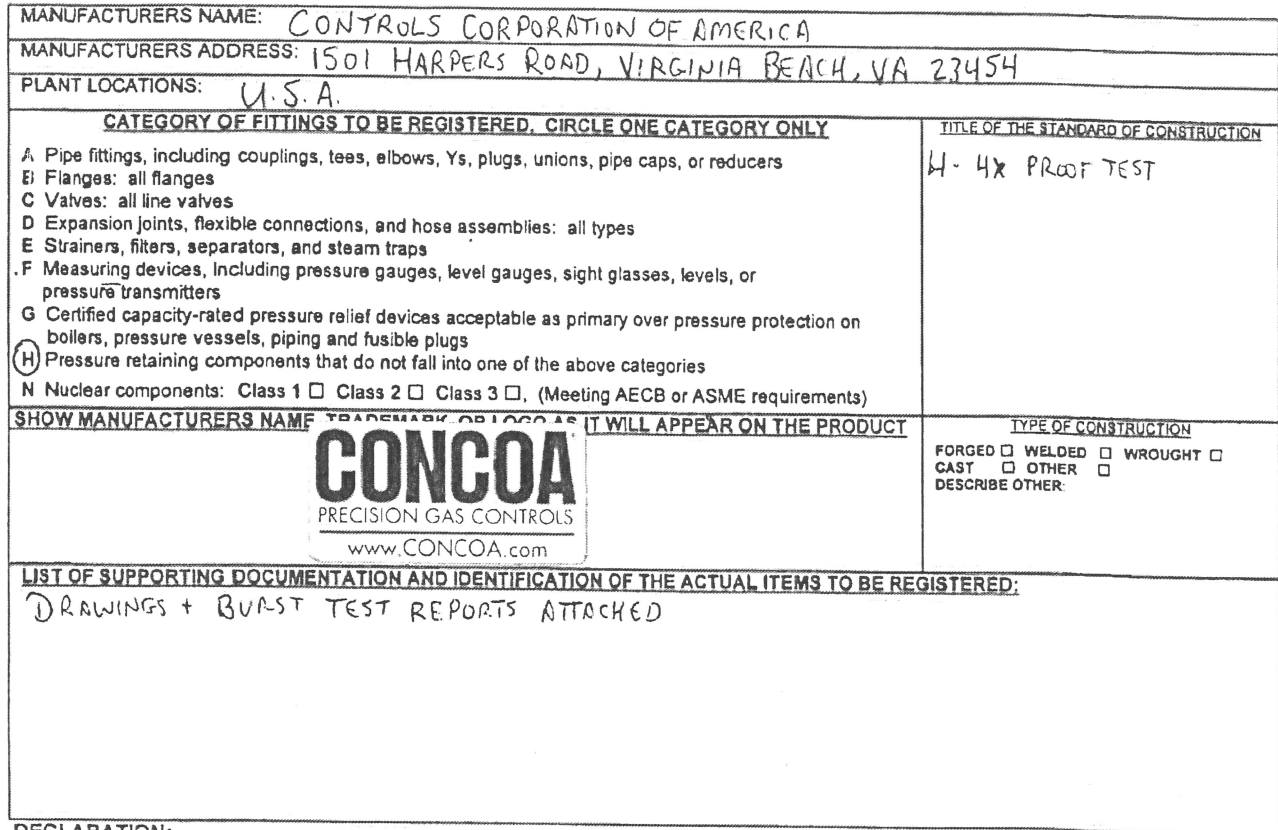 MANUFACTURERS NAME: CONTROLS CORPORATION OF AMERICA
MANUFACTURERS ADDRESS: 1501 HARPERS ROAD, VIRGINIA BEACH, VA 23454
PLANT LOCATIONS: U.S.A.
CATEGORY OF FITTINGS TO BE REGISTERED. CIRCLE ONE CATEGORY ONLY
A Pipe fittings, including couplings, tees, elbows, Ys, plugs, unions, pipe caps, or reducers
B Flanges: all flanges
C Valves: all line valves
D Expansion joints, flexible connections, and hose assemblies: all types
E Strainers, filters, separators, and steam traps
F Measuring devices, including pressure gauges, level gauges, sight glasses, levels, or
pressure transmitters
G Certified capacity-rated pressure relief devices acceptable as primary over pressure protection on
boilers, pressure vessels, piping and fusible plugs
H Pressure retaining components that do not fall into one of the above categories
N Nuclear components: Class 1 □ Class 2 □ Class 3 □, (Meeting AECB or ASME requirements)
TITLE OF THE STANDARD OF CONSTRUCTION
H - 4X PROOF TEST
SHOW MANUFACTURERS NAME TRADEMARK OR LOGO AS IT WILL APPEAR ON THE PRODUCT
CONCOA
PRECISION GAS CONTROLS
www.CONCOA.com
TYPE OF CONSTRUCTION
FORGED □ WELDED □ WROUGHT □
CAST □ OTHER □
DESCRIBE OTHER:
LIST OF SUPPORTING DOCUMENTATION AND IDENTIFICATION OF THE ACTUAL ITEMS TO BE REGISTERED:
DRAWINGS + BURST TEST REPORTS ATTACHED
DECLARATION: